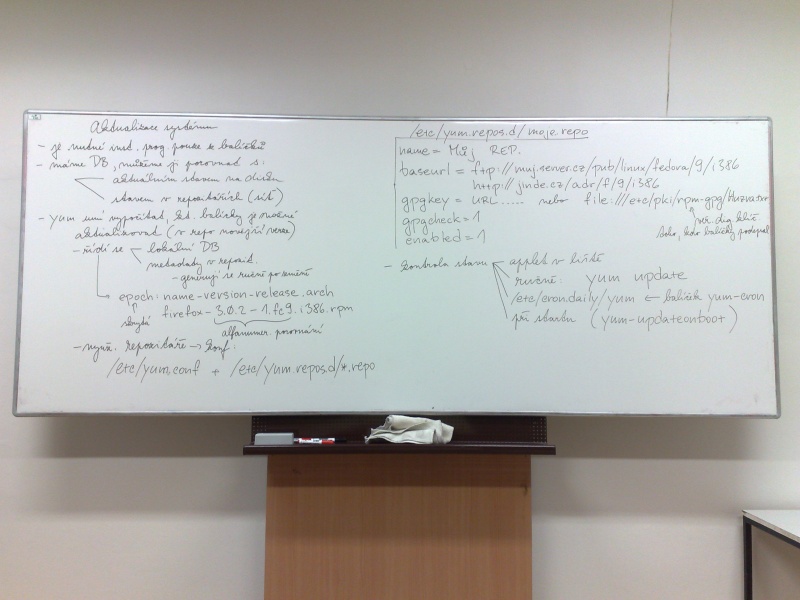 Aktualizace systému
- je nutné inst. prog. pouze z balíčků
- máme DB, můžeme ji porovnat s:
aktuálním stavem na disku
stavem v repozitářích (síť)
- yum umí vypočítat, kt. balíčky je možné
aktualizovat (v repo novější verze)
- řídí se lokální DB
metadaty v reposit.
- generují se ručně po změně
epoch: name-version-release.arch
skrytá firefox-3.0.2-1.fc9.i386.rpm
alfanumer. porovnání
- repozitáře → konf:
/etc/yum.conf + /etc/yum.repos.d/*.repo
/etc/yum.repos.d/moje.repo
name= Můj REP.
baseurl = ftp://muj.server.cz/pub/linux/fedora/9/i386
http://jinde.cz/adr/f/9/i386
gpgkey = URL ..... nebo file:///etc/pki/rpm-gpg/
gpgcheck=1
ver. dig. klíč
enabled=1
toho, kdo balíčky podepsal
- kontrola stavu
applet v liště
ručně: yum update
/etc/cron.daily/yum ← balíček yum-cron
při startu (yum-updateonboot)